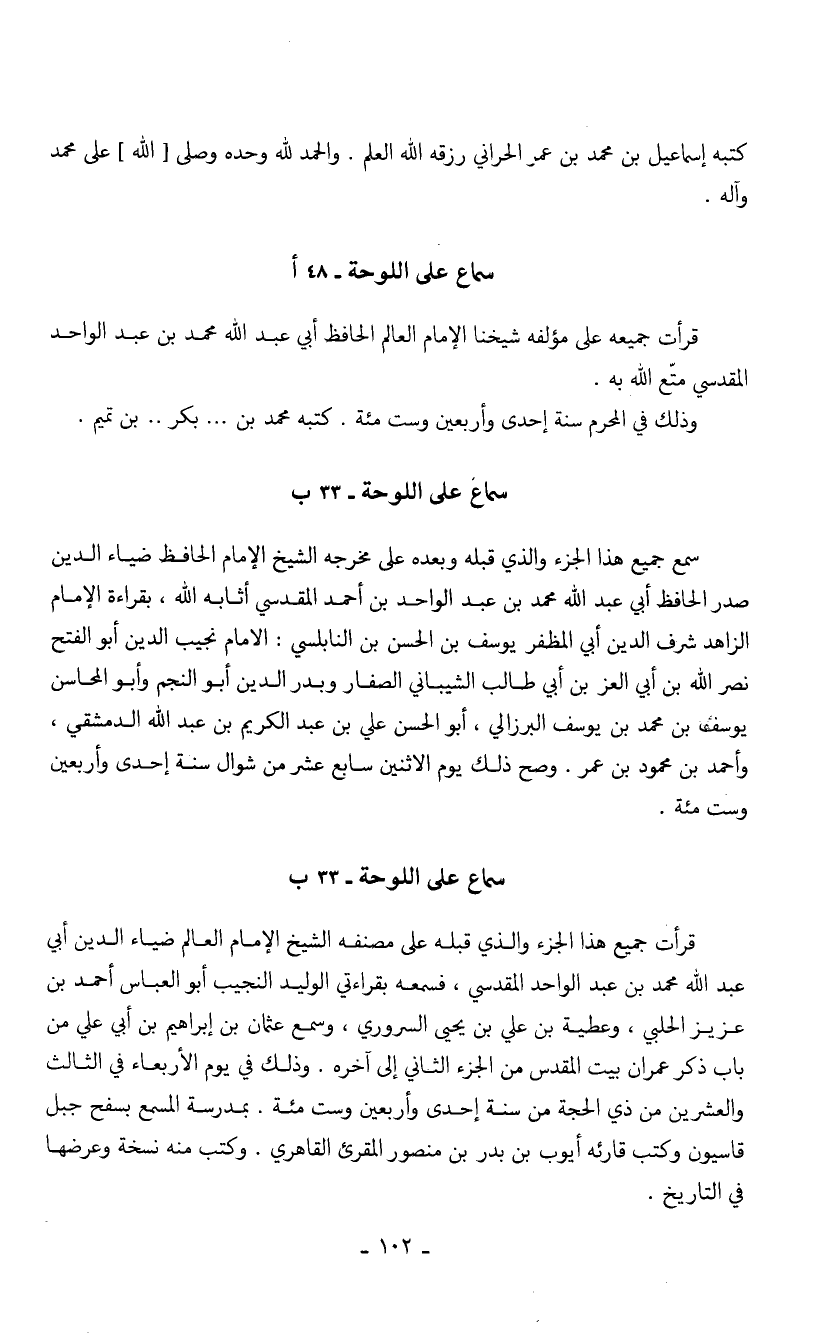 كتبه إسماعيل بن محمد بن عمر الحراني رزقه الله العلم . والحمد لله وحده وصلى [ الله ] على محمد
وآله .
سماع على اللوحة ـ ٤٨ أ
قرأت جميعه على مؤلفه شيخنا الإمام العالم الحافظ أبي عبد الله محمد بن عبد الواحد
المقدسي متّع الله به .
وذلك في المحرم سنة إحدى وأربعين وست مئة . كتبه محمد بن ... بكر .. بن تميم .
سماع على اللوحة ـ ٣٣ ب
سمع جميع هذا الجزء والذي قبله وبعده على مخرجه الشيخ الإمام الحافظ ضياء الدين
صدر الحافظ أبي عبد الله محمد بن عبد الواحد بن أحمد المقدسي أثابه الله ، بقراءة الإمام
الزاهد شرف الدين أبي المظفر يوسف بن الحسن بن النابلسي : الامام نجيب الدين أبو الفتح
نصر الله بن أبي العز بن أبي طالب الشيباني الصفار وبدر الدين أبو النجم وأبو المحاسن
يوسف بن محمد بن يوسف البرزالي ، أبو الحسن علي بن عبد الكريم بن عبد الله الدمشقي ،
وأحمد بن محمود بن عمر . وصح ذلك يوم الاثنين سابع عشر من شوال سنة إحدى وأربعين
وست مئة .
سماع على اللوحة ـ ٣٣ ب
قرأت جميع هذا الجزء والذي قبله على مصنفه الشيخ الإمام العالم ضياء الدين أبي
عبد الله محمد بن عبد الواحد المقدسي ، فسمعه بقراءتي الوليد النجيب أبو العباس أحمد بن
عزيز الحلبي ، وعطية بن علي بن يحيى السروري ، وسمع عثمان بن إبراهيم بن أبي علي من
باب ذكر عمران بيت المقدس من الجزء الثاني إلى آخره . وذلك في يوم الأربعاء في الثالث
والعشرين من ذي الحجة من سنة إحدى وأربعين وست مئة . بمدرسة المسمع بسفح جبل
قاسيون وكتب قارئه أيوب بن بدر بن منصور المقرئ القاهري . وكتب منه نسخة وعرضها
في التاريخ .
ـ ١٠٢ ـ